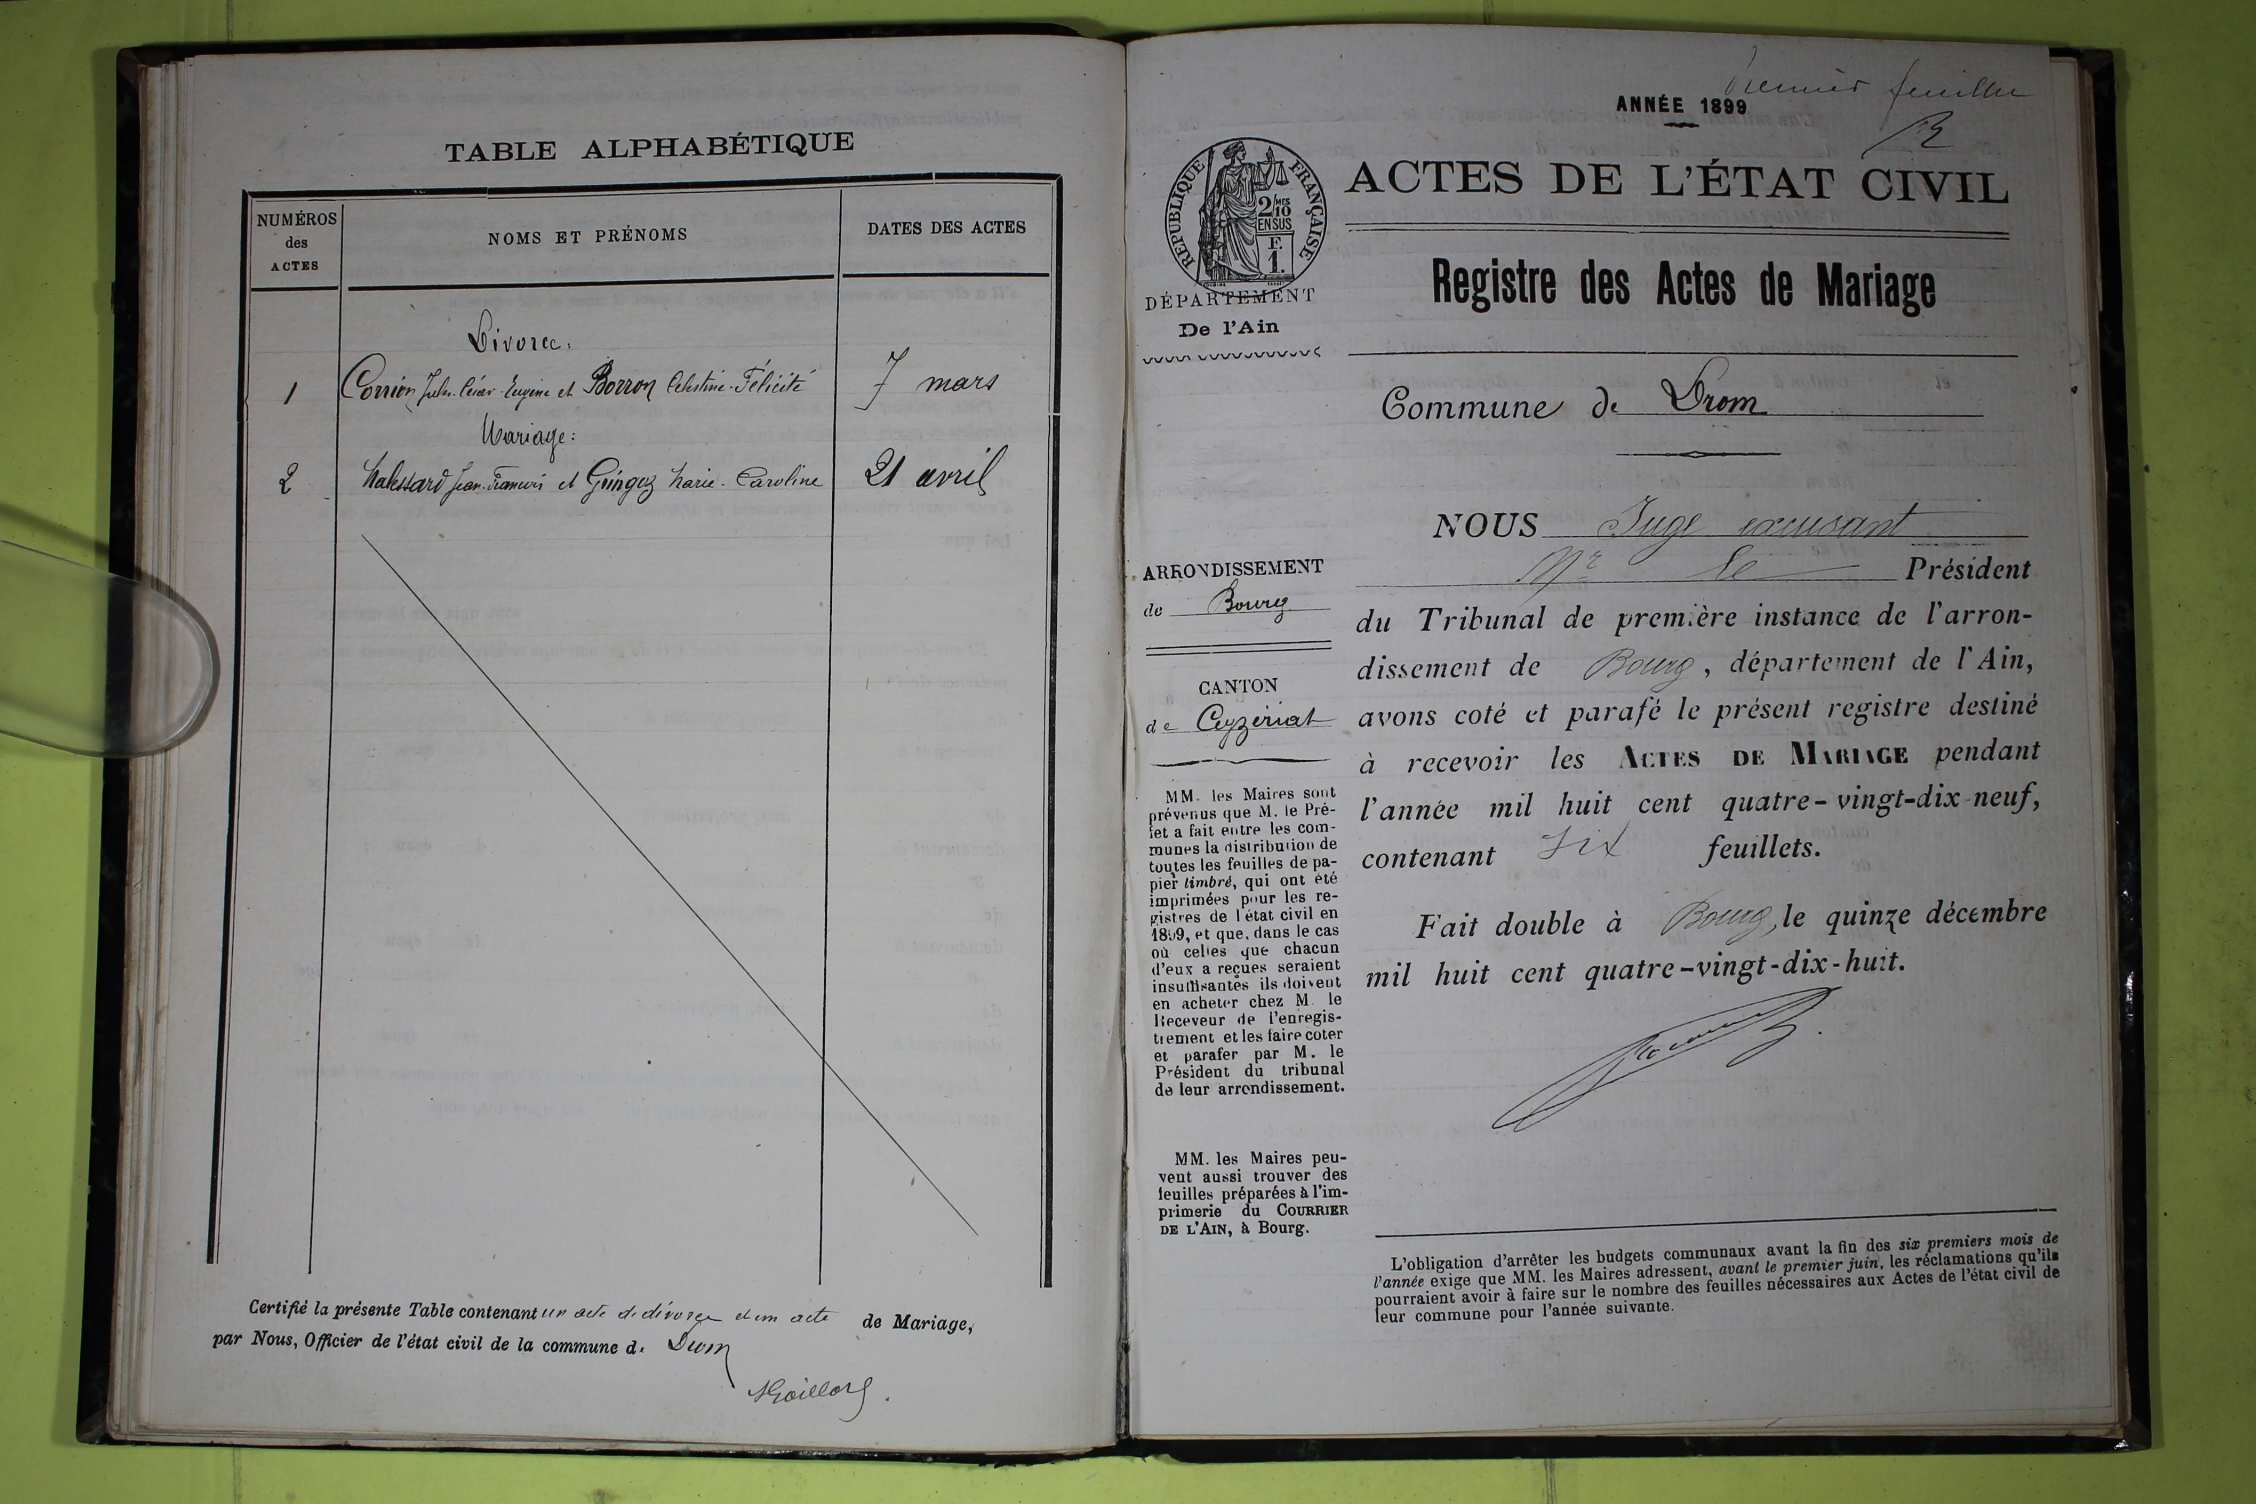 TABLE ALPHABÉTIQUE
NUMÉROS
des
ACTES
NOMS ET PRÉNOMS
DATES DES ACTES
Divorce:
1 Corrion Jules-César-Eugène et Borron Célestine-Félicité 7 mars
Mariage:
2 Jean-François et Gringoz Marie-Caroline 21 avril
Certifié la présente Table contenant un acte de divorce et un acte de Mariage,
par Nous, Officier de l'état civil de la commune de Drom
Premier feuillet
ANNÉE 1899
RÉPUBLIQUE FRANÇAISE
2/MES
10
EN SUS
F.
1.
ACTES DE L'ÉTAT CIVIL
DÉPARTEMENT
De l'Ain
Registre des Actes de Mariage
Commune de Drom
ARRONDISSEMENT
de Bourg
CANTON
de Ceyzériat
MM. les Maires sont
prévenus que M. le Pré-
fet a fait entre les com-
munes la distribution de
toutes les feuilles de pa-
pier timbré, qui ont été
imprimées pour les re-
gistres de l'état civil en
1899, et que, dans le cas
où celles que chacun
d'eux a reçues seraient
insuffisantes ils doivent
en acheter chez M. le
Receveur de l'enregis-
trement et les faire coter
et parafer par M. le
Président du tribunal
de leur arrondissement.
MM. les Maires peu-
vent aussi trouver des
feuilles préparées à l'im-
primerie du COURRIER
DE L'AIN, à Bourg.
NOUS Juge excusant
Mr le Président
du Tribunal de première instance de l'arron-
dissement de Bourg, département de l'Ain,
avons coté et parafé le présent registre destiné
à recevoir les ACTES DE MARIAGE pendant
l'année mil huit cent quatre-vingt-dix-neuf,
contenant six feuillets.
Fait double à Bourg, le quinze décembre
mil huit cent quatre-vingt-dix-huit.
L'obligation d'arrêter les budgets communaux avant la fin des six premiers mois de
l'année exige que MM. les Maires adressent, avant le premier juin, les réclamations qu'ils
pourraient avoir à faire sur le nombre des feuilles nécessaires aux Actes de l'état civil de
leur commune pour l'année suivante.